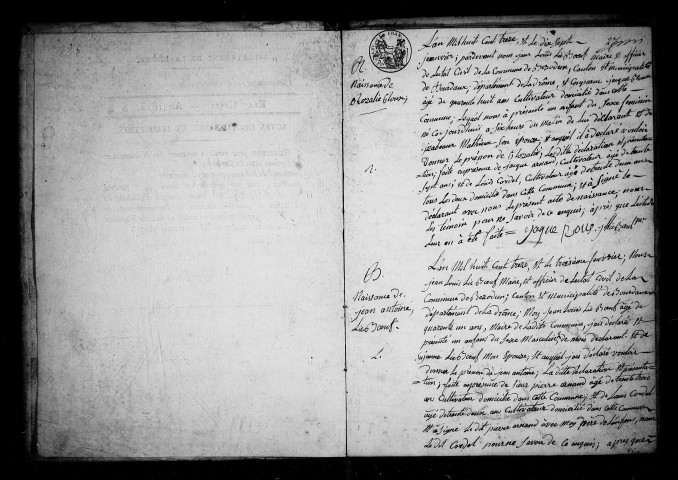 L'an Mil huit Cent treze, et le dix Sept
Janvier; pardevant nous jean Louis LeBoeuf Maire & officier
de Letait Civil de la Commune de Bezodun, Canton & Municipalité
de Bourdaux, département de La drôme, est Comparu jaque Roux
âgé de quarante huit ans Cultivateur domicilié dans cette
Commune, Lequel nous à présenté un enfant du sexe feminin
né ce jourdhuit a six heure du matin de lui déclarant & de
son épouse, & auquel il a déclaré vouloir
donner le prénom de Rosalie; Les dite déclaration & présenta-
tion; faite en présense de jaque arnaud, Cultivateur âgé de trente
Sept ans, & de Louis Cordel, Cultivateur âgé de trente deux ans
tous les deux domiciliés dans cette Commune; & à Signé le
déclarant avec nous le present acte de naissance, non
les témoin pour ne savoir de ce enquis; après que Lecture
leur en à été faite = jaque roux
Naissance de
Rosalie Roux;
Naissance de
jean antoine,
LeBoeuf.
L'an Mil huit Cent treze, et le troisième fevrier; Nous
jean Louis LeBoeuf Maire, et officier de Letait Civil de La
Commune de Bezodun; Canton & Municipalité de Bourdaux
département de La drôme; Moy jean Louis LeBoeuf âgé de
quarante un ans, Maire de Ladite Commune, jais déclaré et
présenté un enfant du Sexe Masculin de mois déclarant & de
Susanne LeBoeuf Mon épouse, & auquel jais déclaré vouloir
donner le prénom de jean antoine; La ditte déclaration & présenta-
tion; faite en présense de Sieur pierre arnaud âgé de trente trois
ans Cultivateur domicilié dans cette Commune; & de Louis Cordel
âgé de trente deux ans Cultivateur domicilié dans cette Commune
& a signé Le dit pierre arnaud avec moy père de Lenfant, non
le dit Cordel pour ne savoir de ce enquis; après que